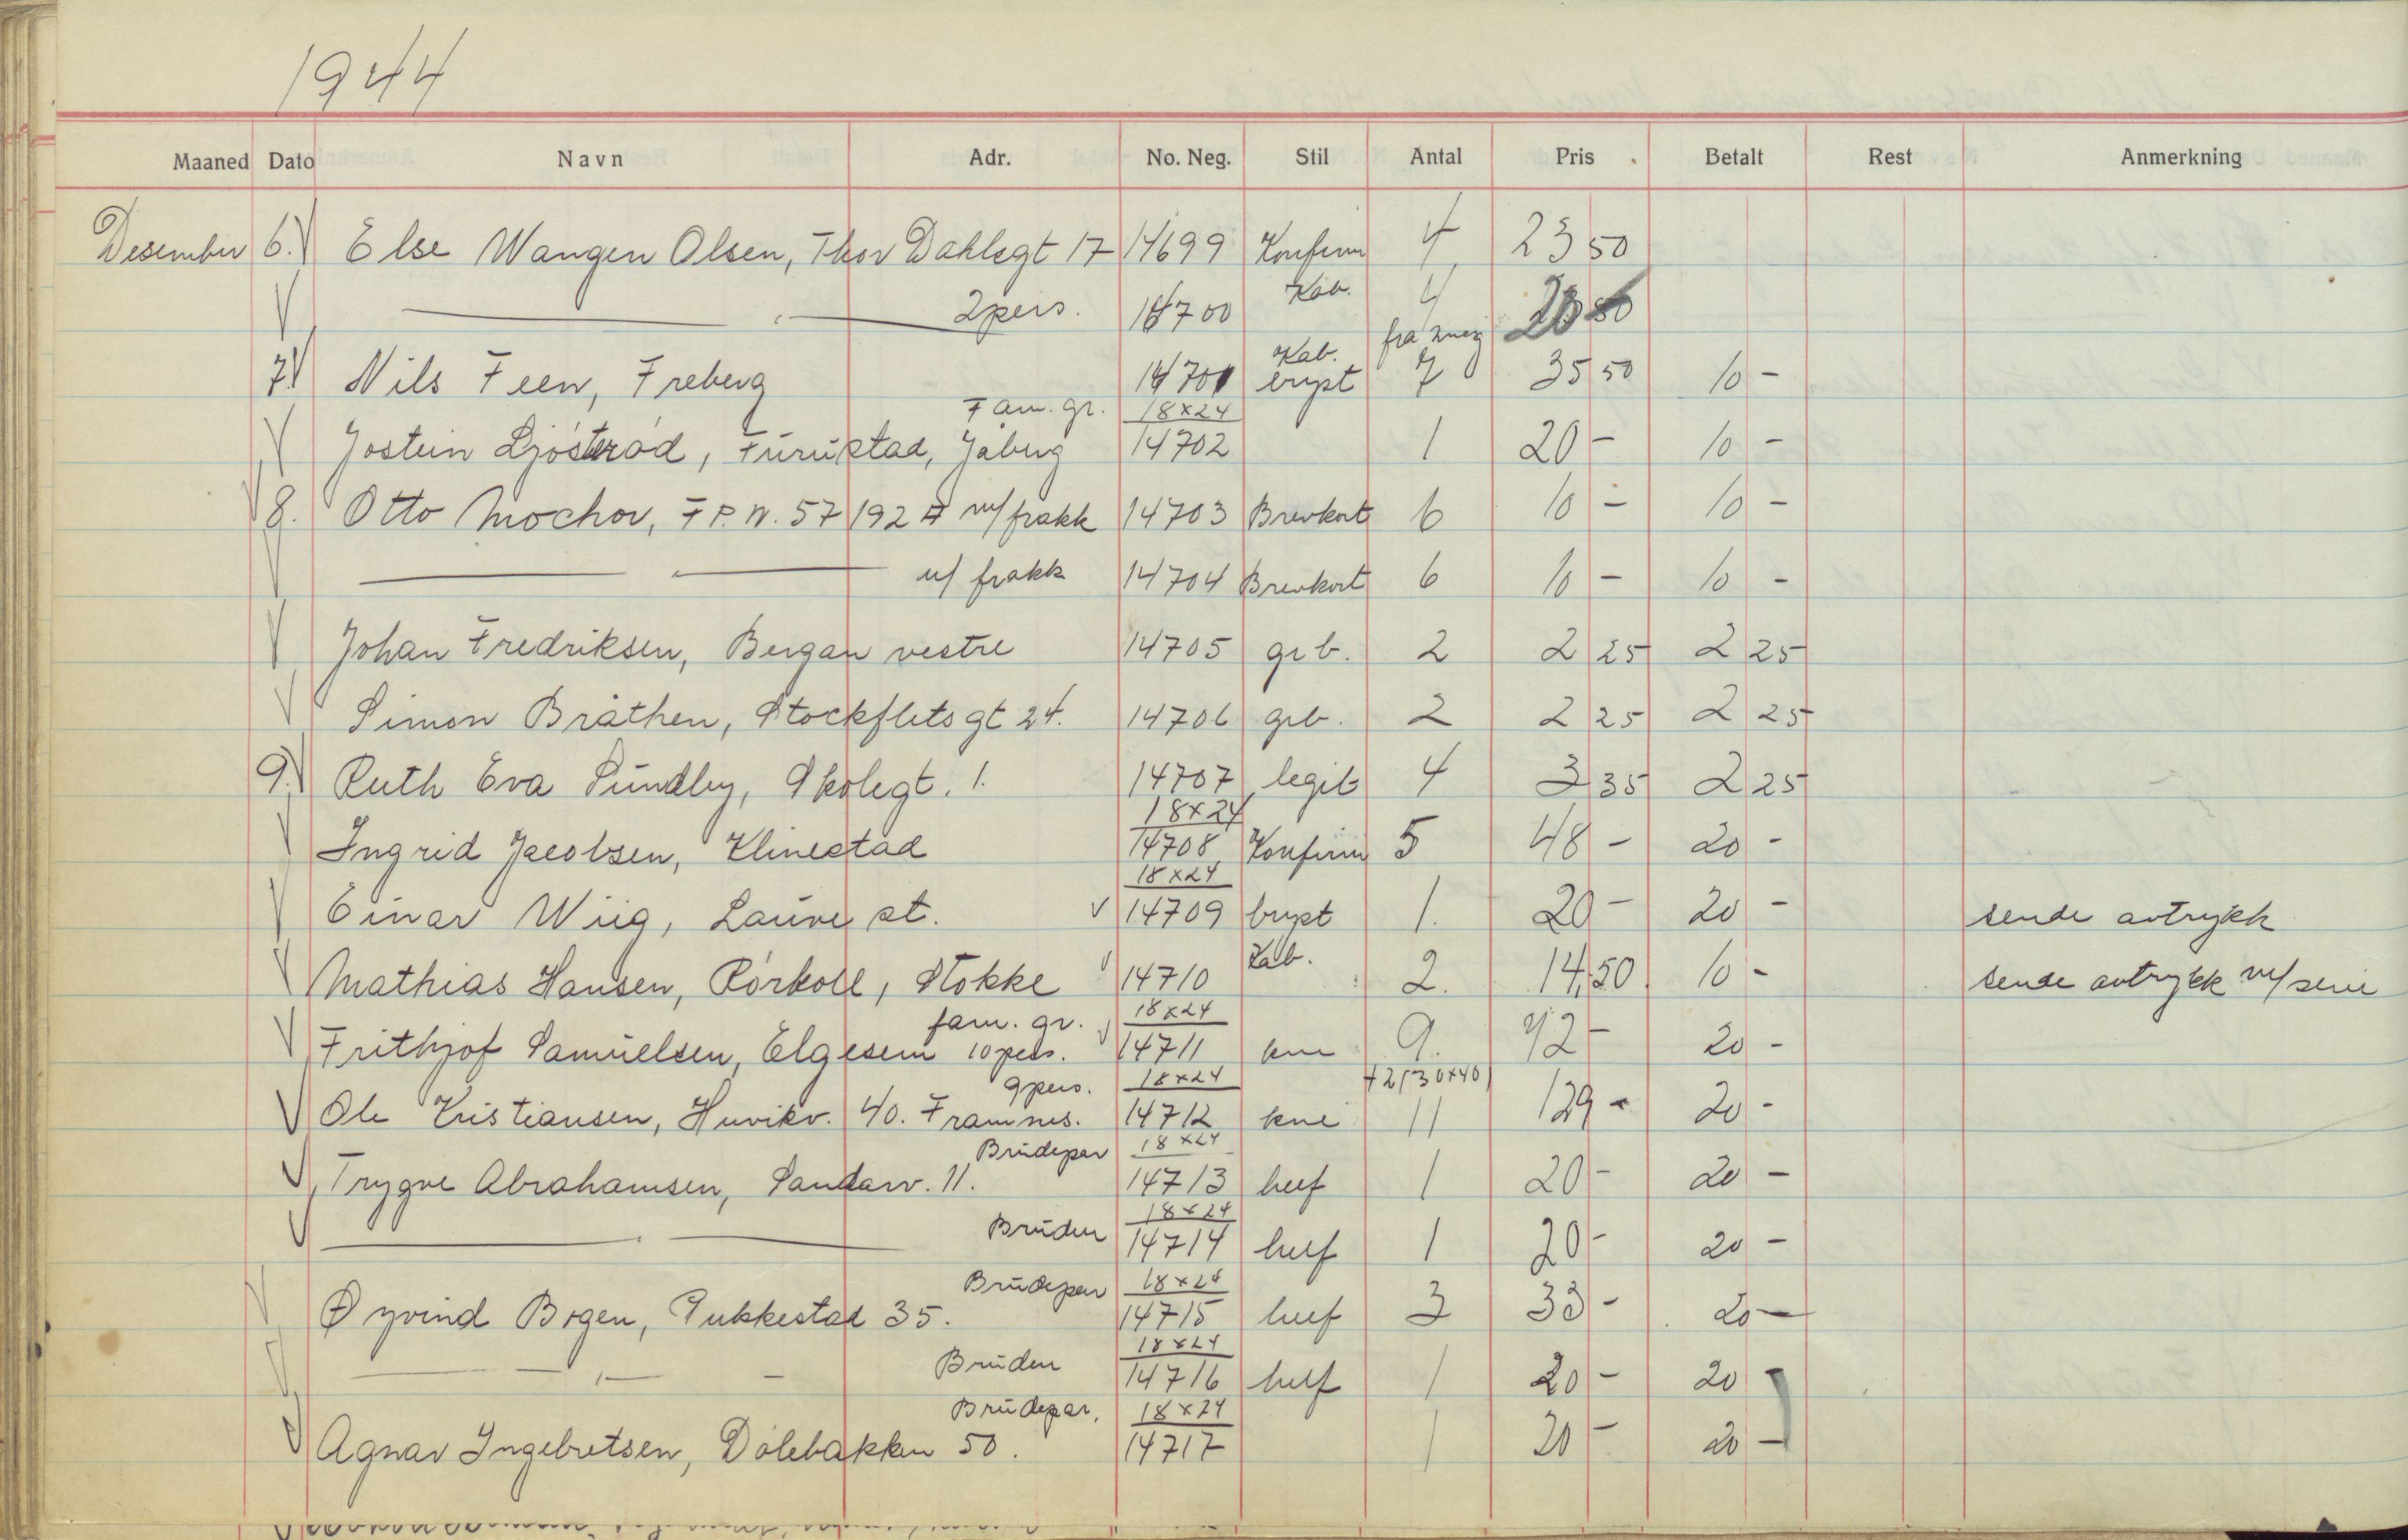 1944
Maaned Dato Navn Adr. No. Neg. Stil Antal Pris Betalt Rest Anmerkning
Desember 6. Else Wangen Olsen, Thor Dahlsgt 17 14699 Konfirm 4 23 50
2pers. 14700 Kab. 4
fra 2neg
7. Nils Feen, Freberg 14701 Kab. bryst 7 35 50 10 -
Fam. gr. 18x24
Jostein Ljösteråd, Furustad, Jåberg 14702 1 20 - 10 -
8. Otto Mochov, F.P.N. 57192 A m/frakk 14703 Brevkort 6 10 - 10 -
u/ frakk 14704 Brevkort 6 10 - 10 -
Johan Fredriksen, Bergan vestre 14705 grb. 2 2 25 2 25
Simon Bråthen, Stockflets gt 24. 14706 grb. 2 2 25 2 25
9. Ruth Eva Sundby, Skolegt. 1. 14707 legit 4 3 35 2 25
18x24
Ingrid Jacobsen, Klinestad 14708 Konfirm 5 48 - 20 -
18x24
Einar Wiig, Lauve st. 14709 bryst 1. 20 - 20 - sende avtrykk
Mathias Hansen, Rörkoll, Stokke 14710 Kab. 2. 14,50 10 - sende avtrykk
fam. gr. 18x24
Frithjof Samuelsen, Elgesem 10 pers. 14711 kne 9. 92 - 20 -
9pers. 18x24 +2(30x40)
Ole Kristiansen, Huvikv. 40. Framnes. 14712 kne 11 129 - 20 -
Brudepar 18x24
Trygve Abrahamsen, Sandarv. 11. 14713 helf 1 20 - 20 -
18x24
Bruden 14714 helf 1 20 - 20 -
Brudepar 18x24
Øyvind Bogen, Pukkestad 35. 14715 helf 3 33 - 20 -
18x24
Bruden 14716 helf 1 20 - 20 -
Brudepar. 18x24
Agnar Ingebretsen, Dölebakken 50. 14717 1 20 - 20 -